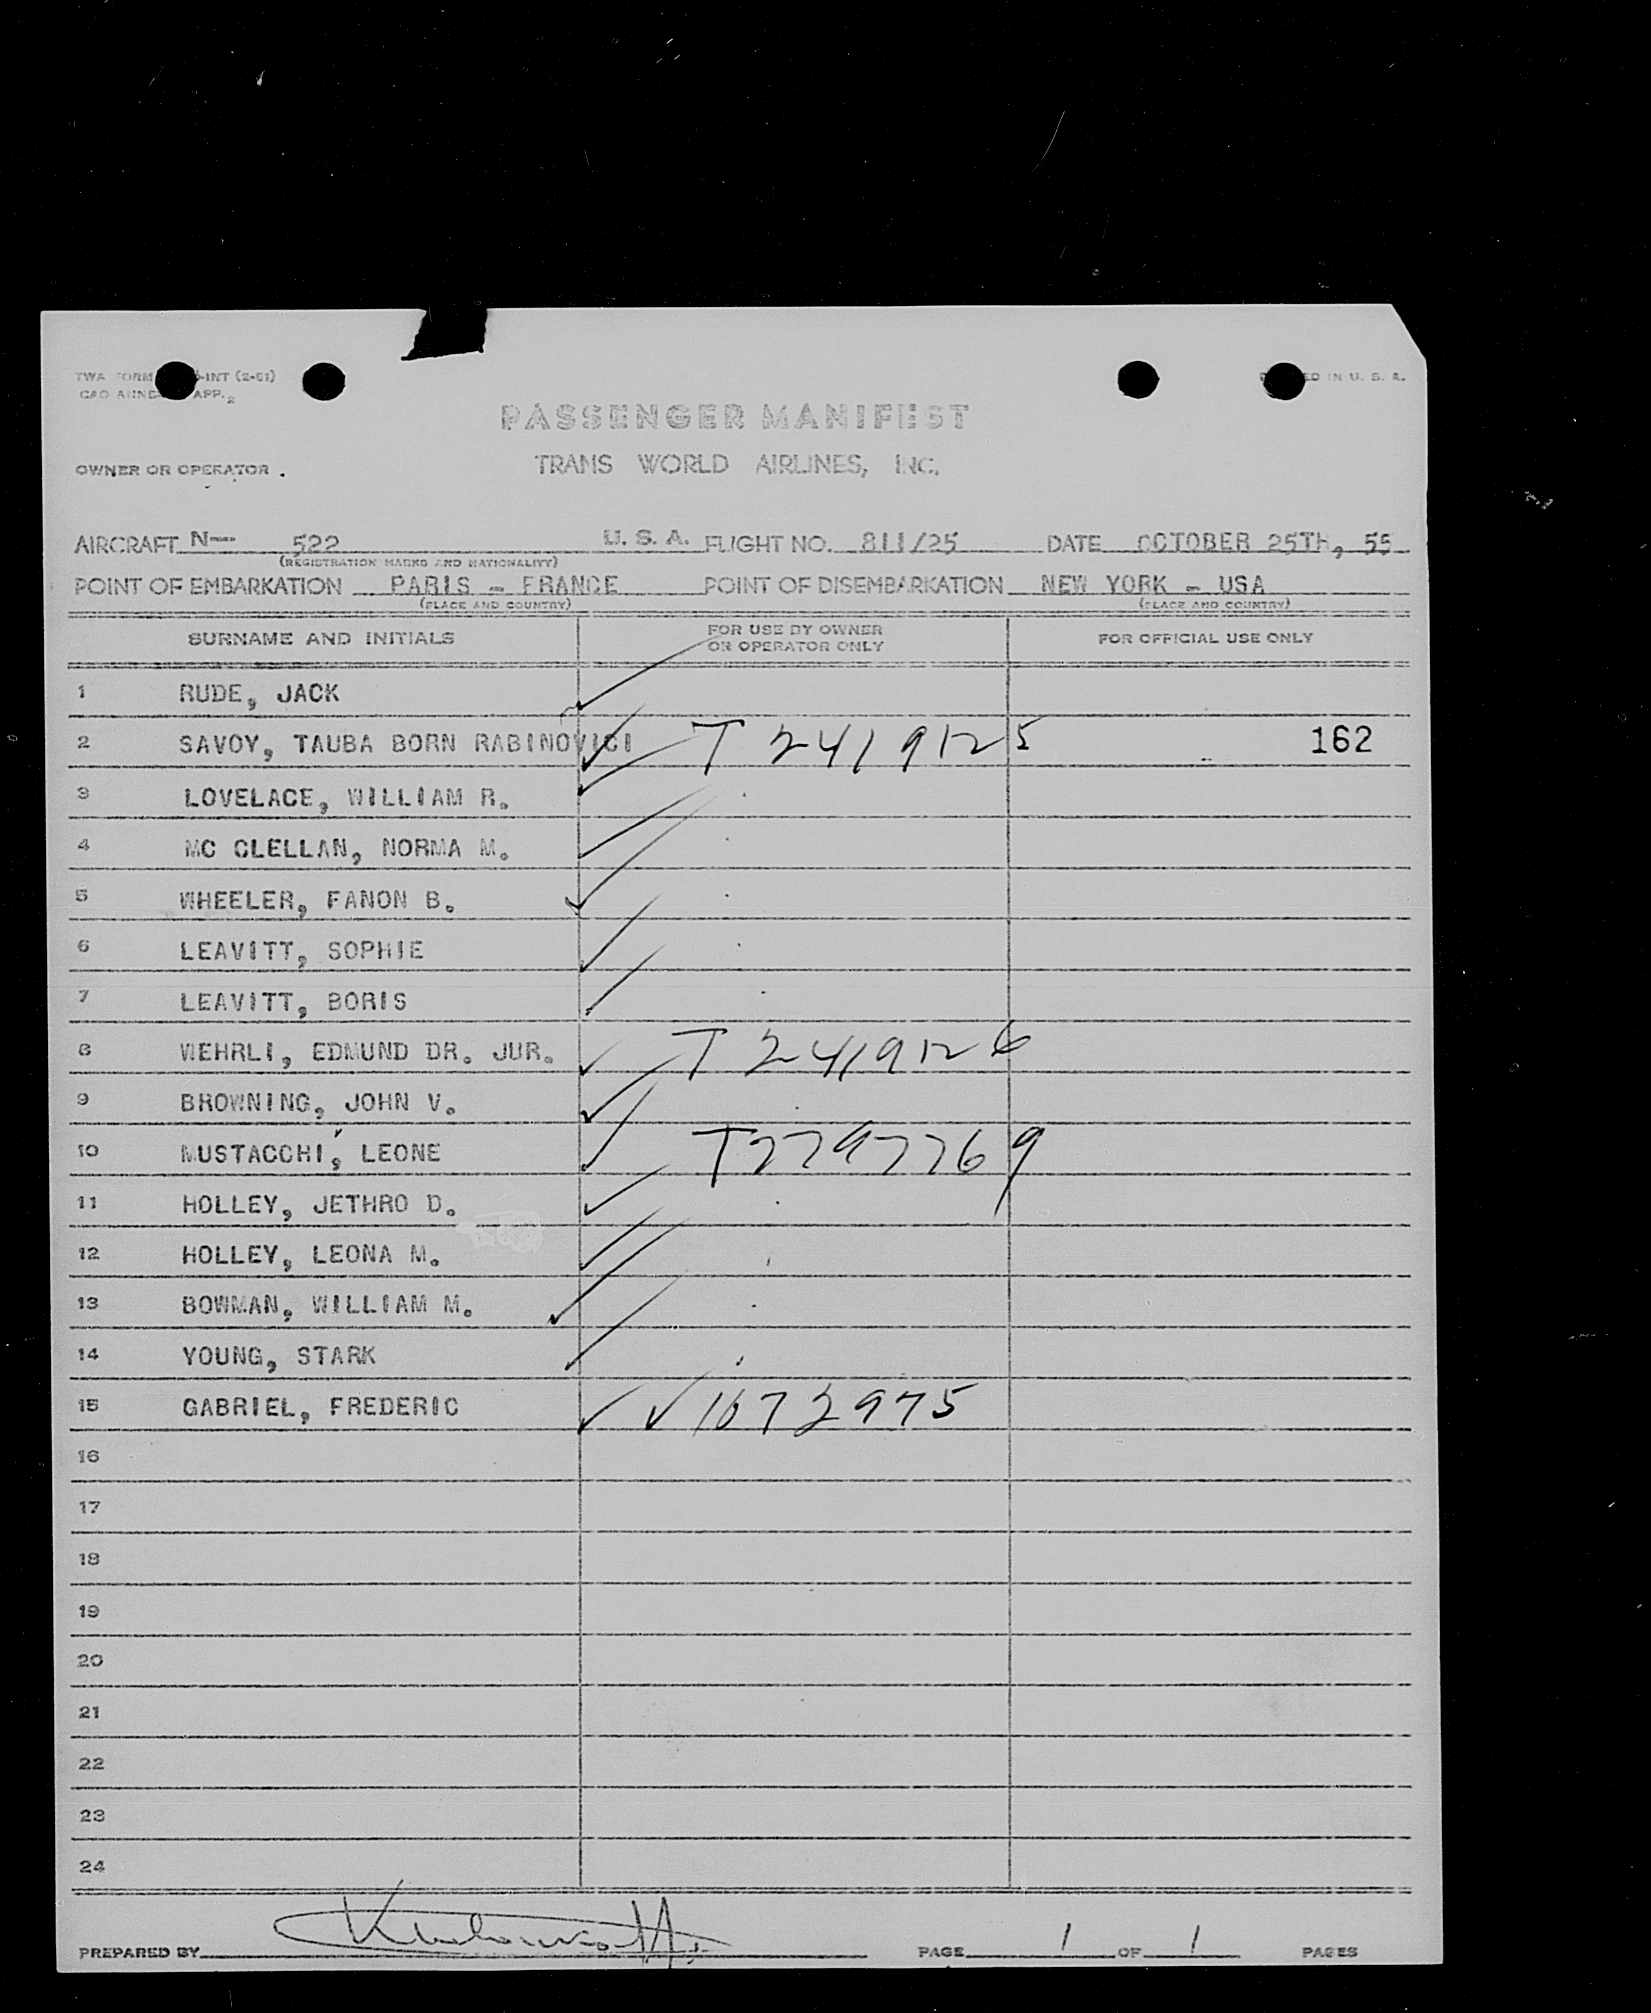 TWA FORM -INT (2-51) PRINTED IN U. S. A.
APP. 2
PASSENGER MANIFEST
OWNER OR OPERATOR . TRANS WORLD AIRLINES, INC.
AIRCRAFT N-- 522 U. S. A. FLIGHT NO. 811/25 DATE OCTOBER 25TH, 55
(REGISTRATION MARKS AND NATIONALITY)
POINT OF EMBARKATION PARIS - FRANCE POINT OF DISEMBARKATION NEW YORK - USA
(PLACE AND COUNTRY) (PLACE AND COUNTRY)
SURNAME AND INITIALS FOR USE BY OWNER OR OPERATOR ONLY FOR OFFICIAL USE ONLY
1 RUDE, JACK
2 SAVOY, TAUBA BORN RABINOVICI T 2419125 162
3 LOVELACE, WILLIAM R.
4 MC CLELLAN, NORMA M.
5 WHEELER, FANON B.
6 LEAVITT, SOPHIE
7 LEAVITT, BORIS
8 WEHRLI, EDMUND DR. JUR. T 2419126
9 BROWNING, JOHN V.
10 MUSTACCHI, LEONE T2797769
11 HOLLEY, JETHRO D.
12 HOLLEY, LEONA M.
13 BOWMAN, WILLIAM M.
14 YOUNG, STARK
15 GABRIEL, FREDERIC V1672975
16
17
18
19
20
21
22
23
24
PREPARED BY PAGE 1 OF 1 PAGES